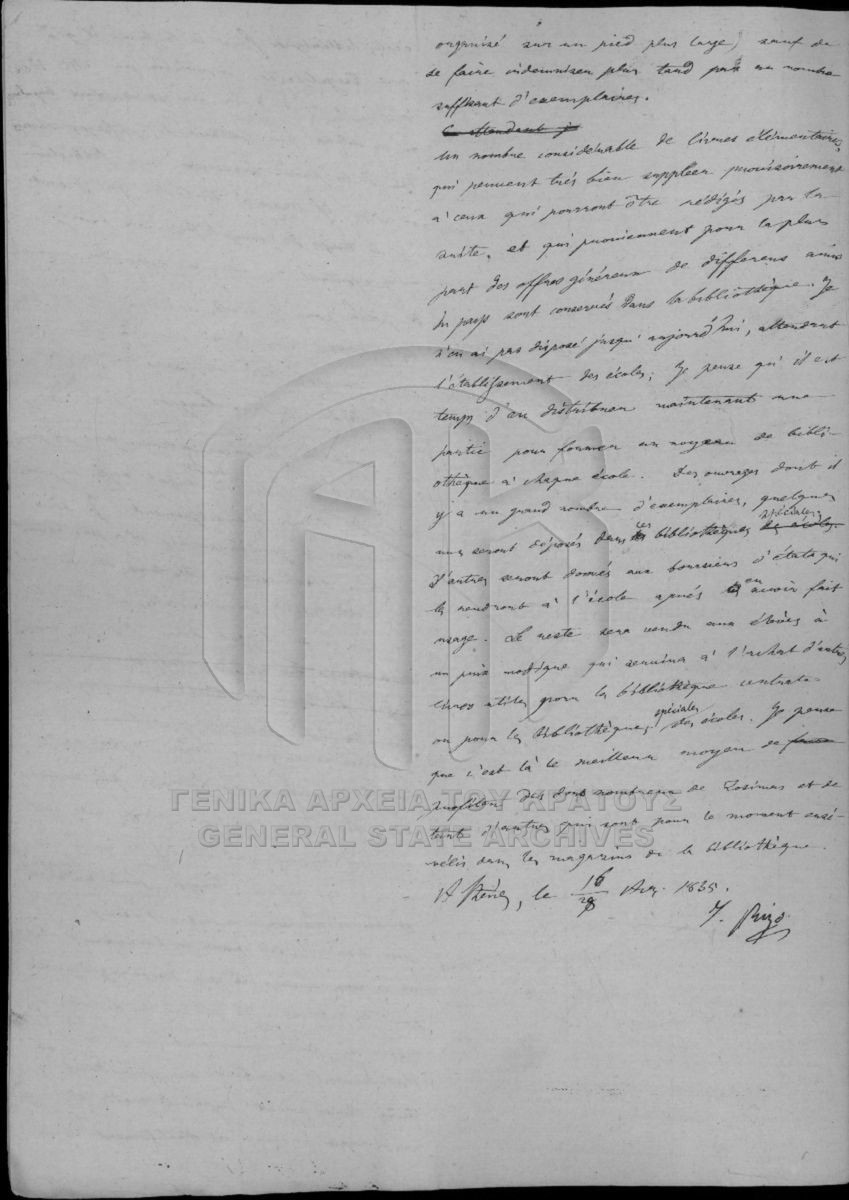 organisé sur un pied plus large) sauf de
se faire indemniser plus tard par un nombre
suffisant d'exemplaires.
En attendant je
Un nombre considérable de livres élémentaires,
qui peuvent très bien suppléer provisoirement
à ceux qui pourront être rédigés par la
suite, et qui proviennent pour la plus
part des offres généreux de différens amis
du pays sont conservés dans la bibliothèque. Je
n'en ai pas disposé jusqu'aujourd'hui, attendant
l'établissement des écoles; Je pense qu'il est
temps d'en distribuer maintenant une
partie pour former un noyeau de bibli-
othèque à chaque école. Des ouvrages dont il
y a un grand nombre d'exemplaires, quelques
spéciales
uns seront déposés dans ces bibliothèques des écoles
d'autres seront donnés aux boursiers d'états qui
les rendront à l'école après en avoir fait
usage. Le reste sera vendu aux élèves à
un prix modique qui servira à l'achat d'autres
livres utiles pour la bibliothèque centrale
ou pour les bibliothèques spéciales des écoles. Je pense
que c'est là le meilleur moyen de
profiter des dons nombreux de Zosimas et de
tant d'autres qui sont pour le moment ensé-
velis dans les magasins de la bibliothèque.
Athènes, le 16/28 Avr. 1835.
J. Rizo
ΓΕΝΙΚΑ ΑΡΧΕΙΑ ΤΟΥ ΚΡΑΤΟΥΣ
GENERAL STATE ARCHIVES